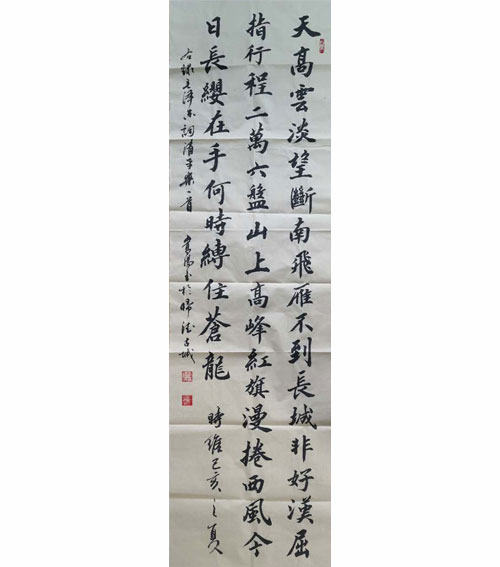 天高雲淡望斷南飛雁不到長城非好漢屈
指行程二萬六盤山上高峰紅旗漫捲西風今
日長纓在手何時縛住蒼龍 時維己亥之夏
右錄毛泽东詞清平樂一首 书於帰德古城